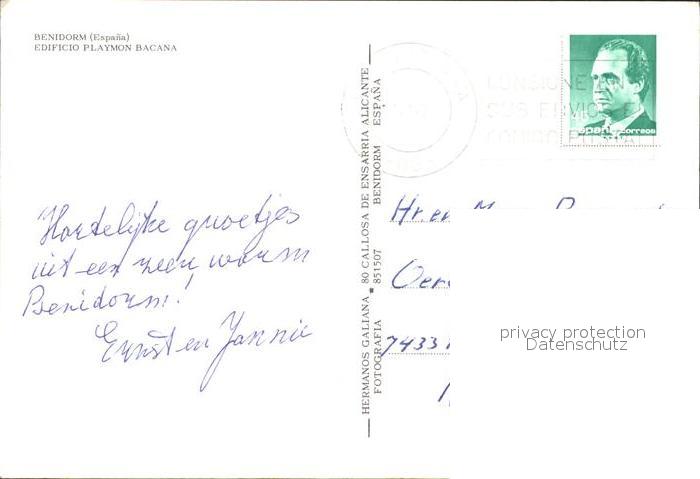 BENIDORM (España)
EDIFICIO PLAYMON BACANA
Hartelijke groetjes
uit een zeer warm
Benidorm!
Ernst en Jannie
HERMANOS GALIANA * 80 CALLOSA DE ENSARRIA ALICANTE
FOTOGRAFIA 851507 BENIDORM ESPAÑA
CONSIGNE
SUS ENVIOS EL
CODIGO POSTAL
España correos
Hr. en
7433
privacy protection
Datenschutz